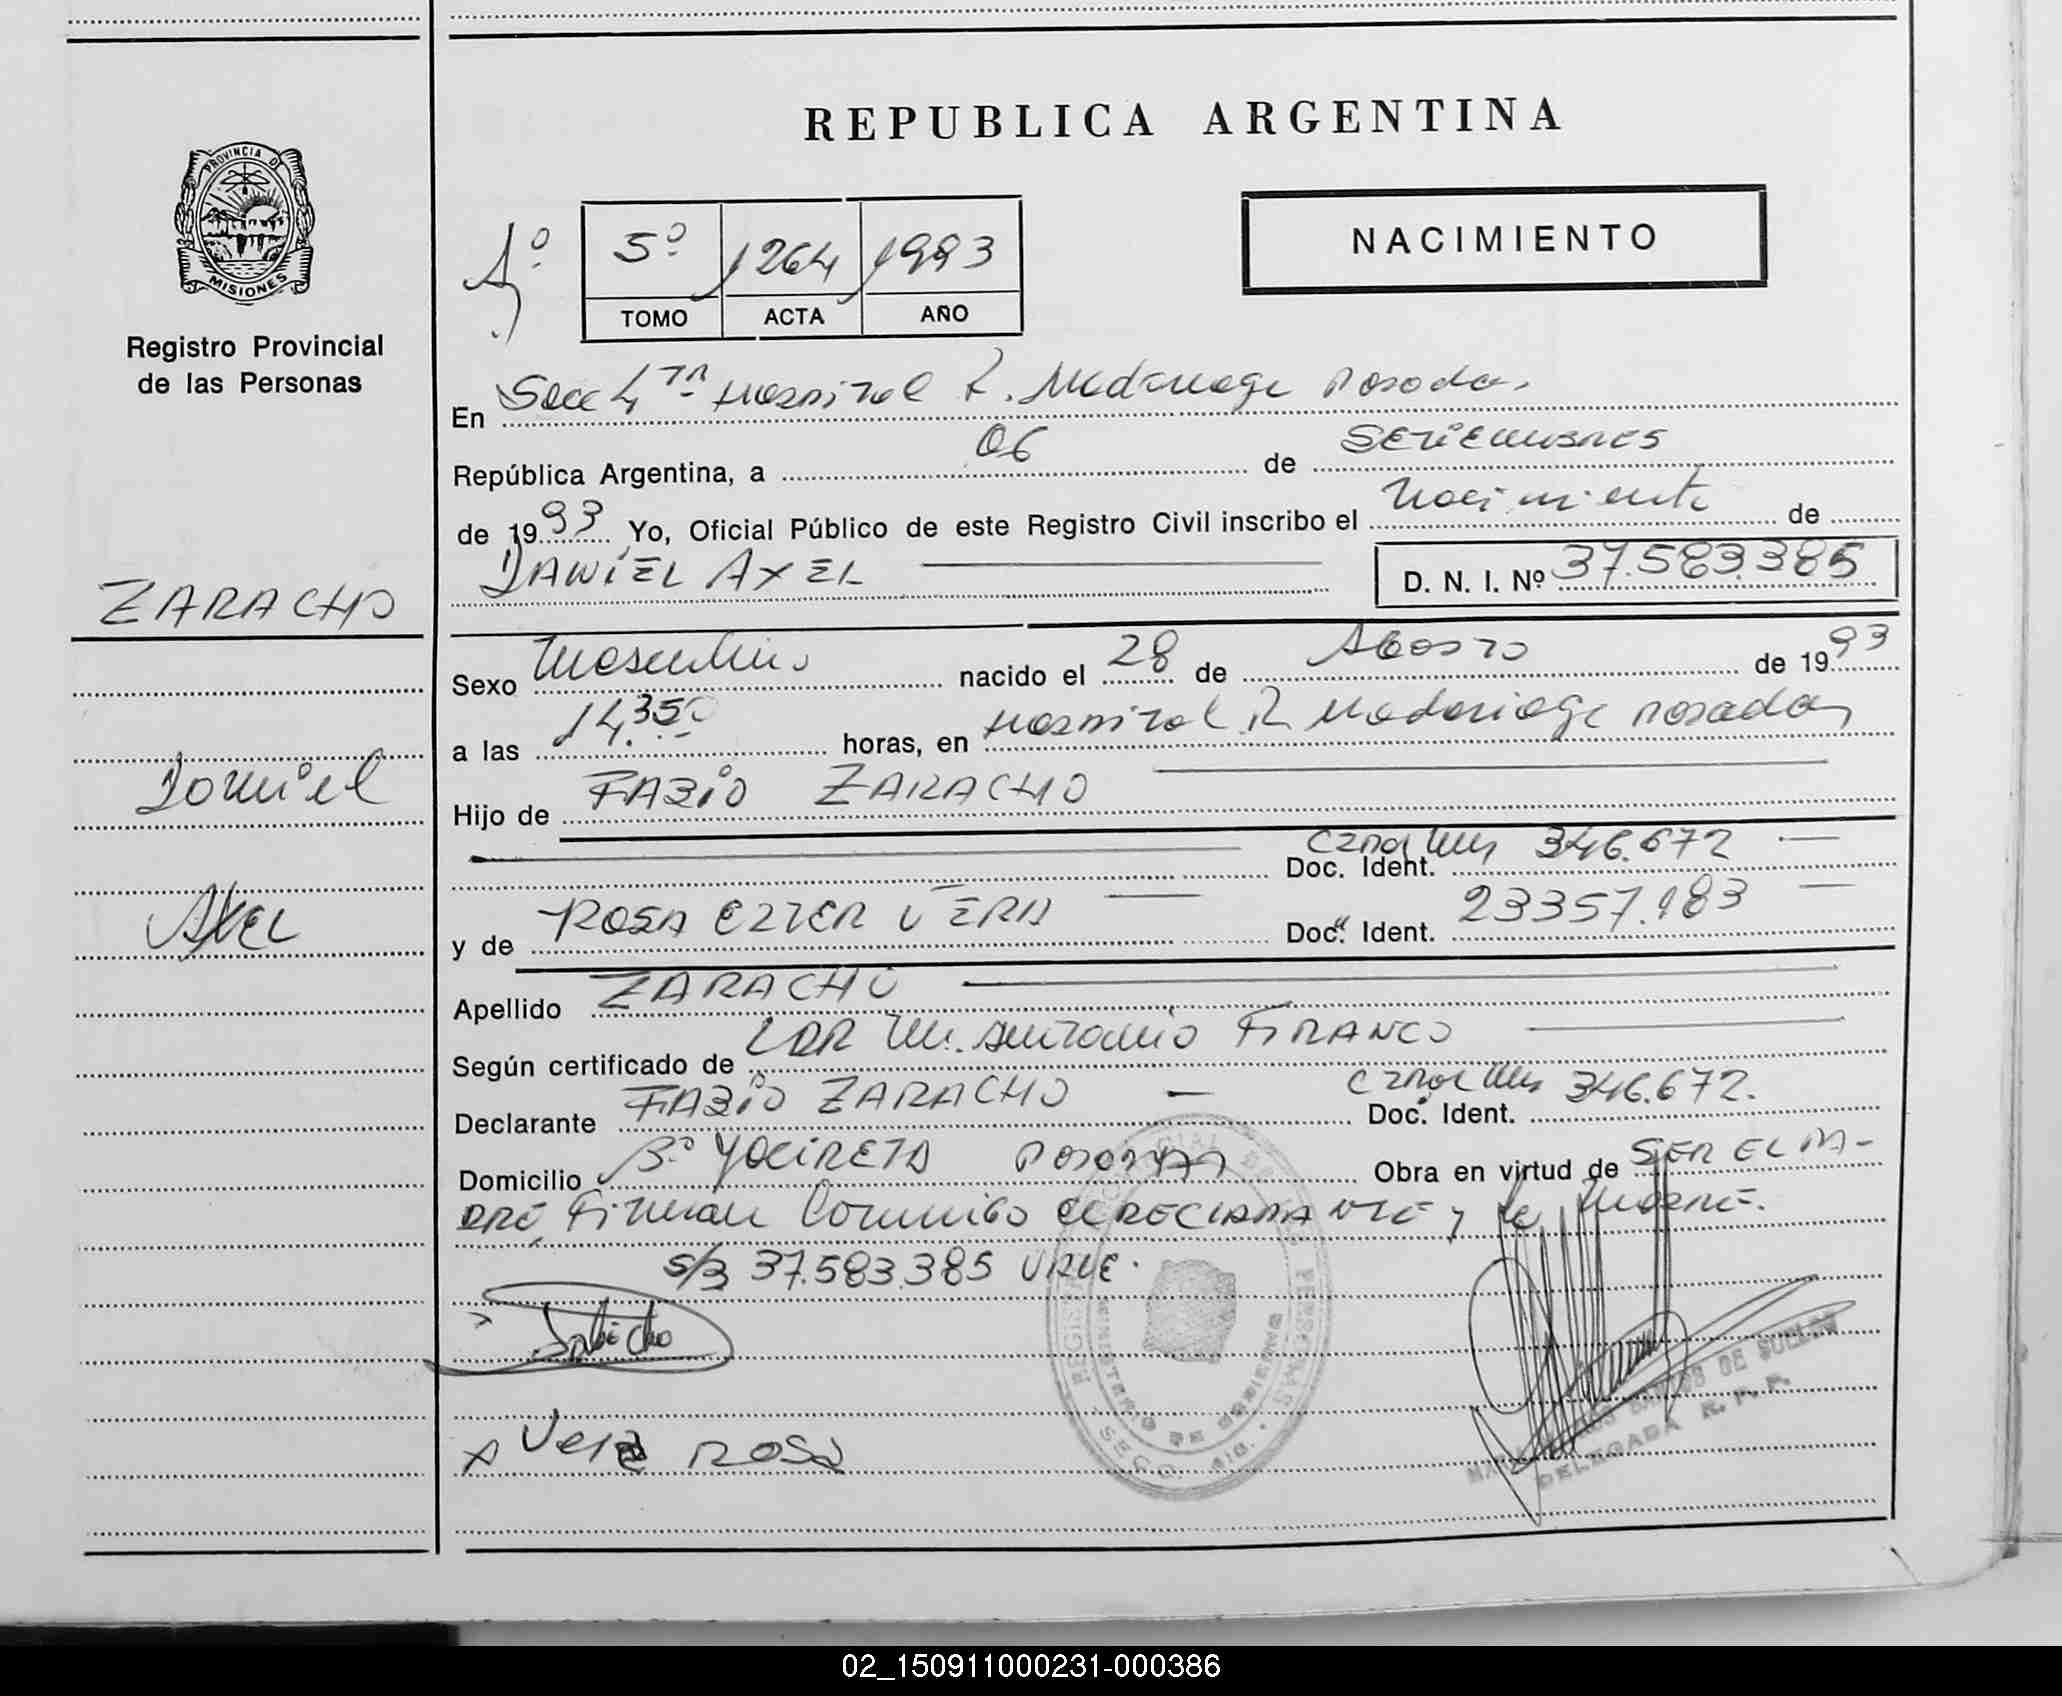 REPUBLICA ARGENTINA
PROVINCIA DE
MISIONES
Registro Provincial
de las Personas
5º 1264 1993
TOMO ACTA AÑO
NACIMIENTO
En Secc 4ta Hospital R. Madariaga Posadas
República Argentina, a 06 de SETIEMBRES
de 1993 Yo, Oficial Público de este Registro Civil inscribo el Nacimiento de
DANIEL AXEL D. N. I. Nº 37.583.385
ZARACHO
Sexo Masculino nacido el 28 de AGOSTO de 1993
a las 14.35 horas, en Hospital R Madariaga Posadas
Daniel
Hijo de FABIO ZARACHO
Doc. Ident. 346.672
Axel
y de ROSA ESTER VERA Doc. Ident. 23357.183
Apellido ZARACHO
Según certificado de DR M. Antonio FRANCO
Declarante FABIO ZARACHO Doc. Ident. 346.672.
Domicilio Bº YACIRETA POSADAS Obra en virtud de SER EL PA-
DRE, Firman Conmigo el DECLARANTE y la MADRE.
S/B 37.583.385 VALE.
Vera ROSA
DELEGADA R. P. P.
02_150911000231-000386